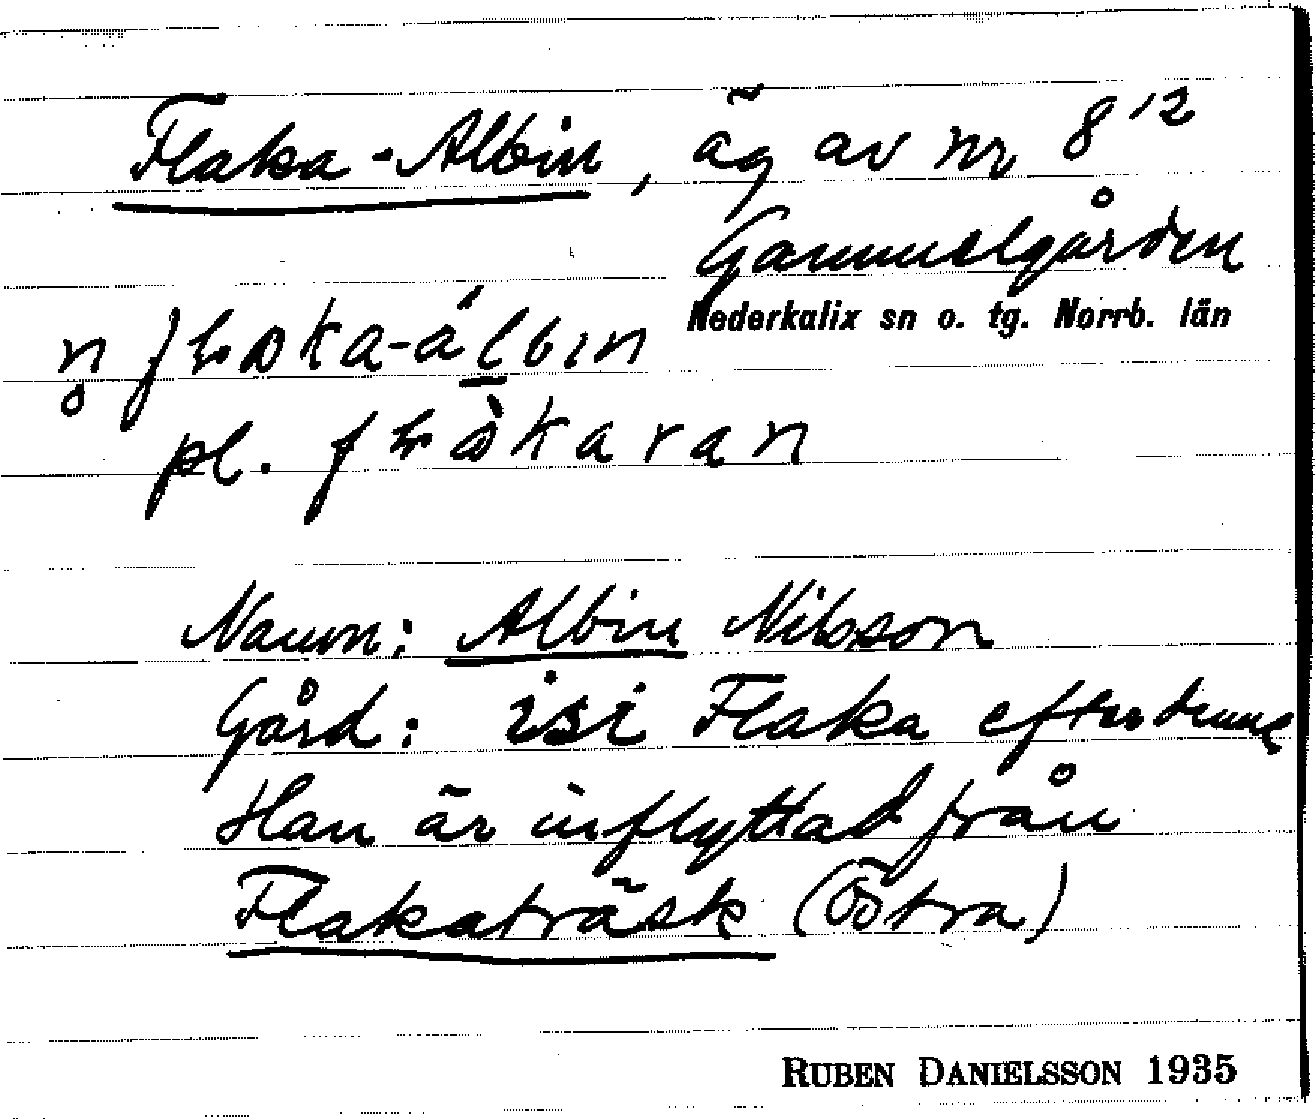 Flaka-Albin, äg av nr 8¹²
Gammelgården
Nederkalix sn o. tg. Norrb. län
pl.
Namn: Albin Nilsson
Gård: isi Flaka efter denne
Han är inflyttad från
Flakaträsk (Östra)
RUBEN DANIELSSON 1935